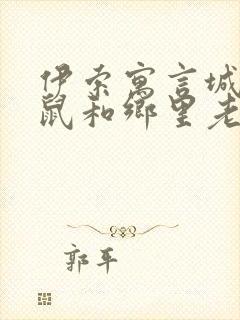 伊索寓言城
鼠和鄉里老
郭平